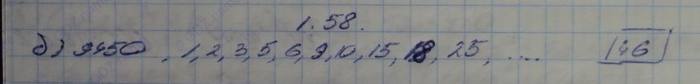 1.58.
б) 9450, 1, 2, 3, 5, 6, 9, 10, 15, 18, 25, .... 46